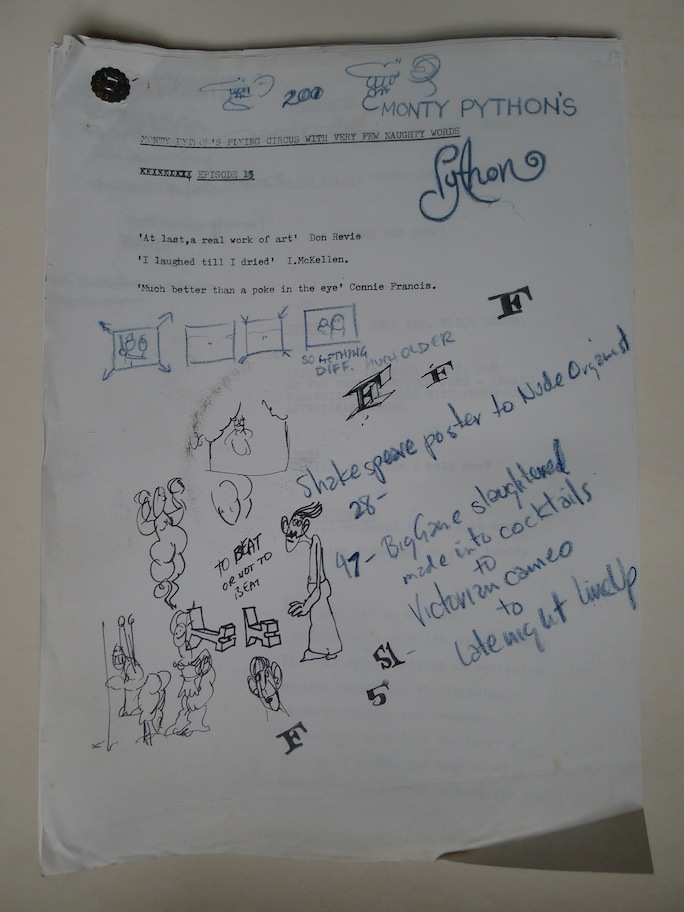 200
MONTY PYTHON'S
MONTY PYTHON'S FLYING CIRCUS WITH VERY FEW NAUGHTY WORDS
Python
XXXXXXXX EPISODE 13
'At last,a real work of art' Don Revie
'I laughed till I dried' I.McKellen.
'Much better than a poke in the eye' Connie Francis.
F
SOMETHING
DIFF.
HOLDER
F
F
Shakespeare poster to Nude Organist
28-
TO BEAT
OR NOT TO
BEAT
47- Big Game slaughtered
made into cocktails
TO
Victorian cameo
to
Late night LineUp
51-
5
F